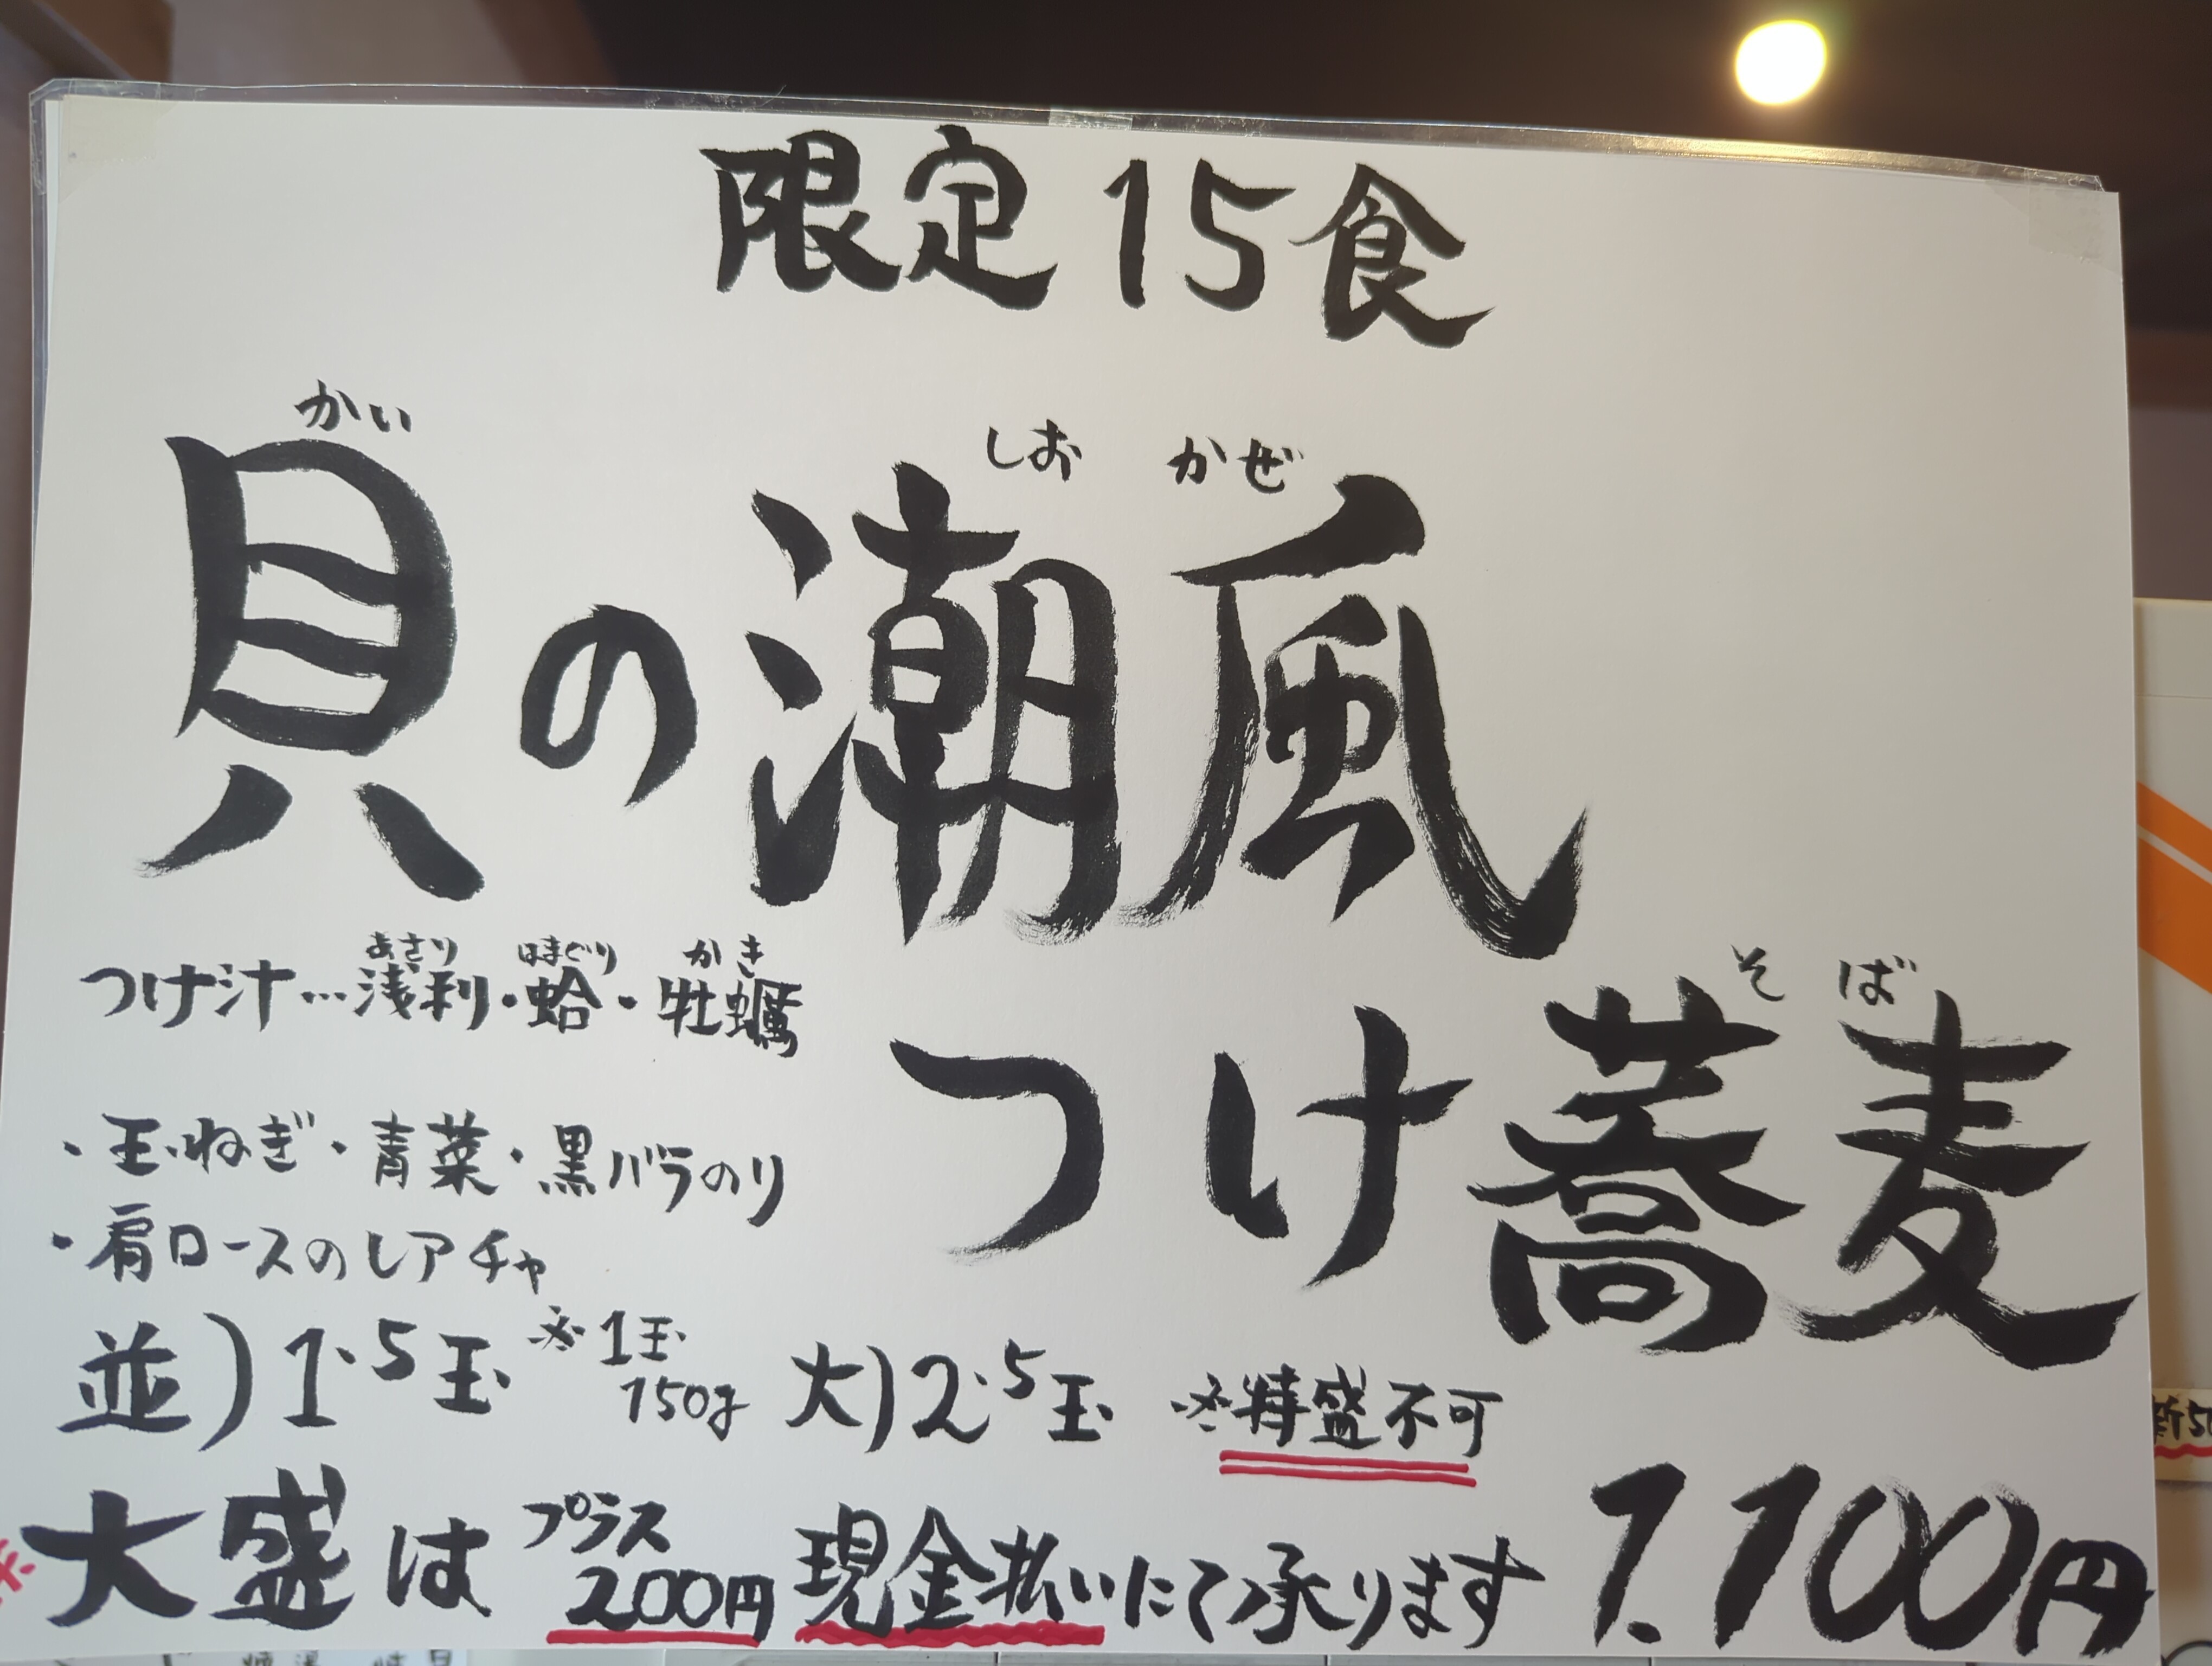 限定15食
かい しお かぜ
貝の潮風
そば
つけ蕎麦
あさり はまぐり かき
つけ汁…浅利・蛤・牡蠣
・玉ねぎ・青菜・黒バラのり
・肩ロースのレアチャ
並)1.5玉 ※1玉150g 大)2.5玉 ※特盛不可
※大盛はプラス200円現金払いにて承ります 1.100円